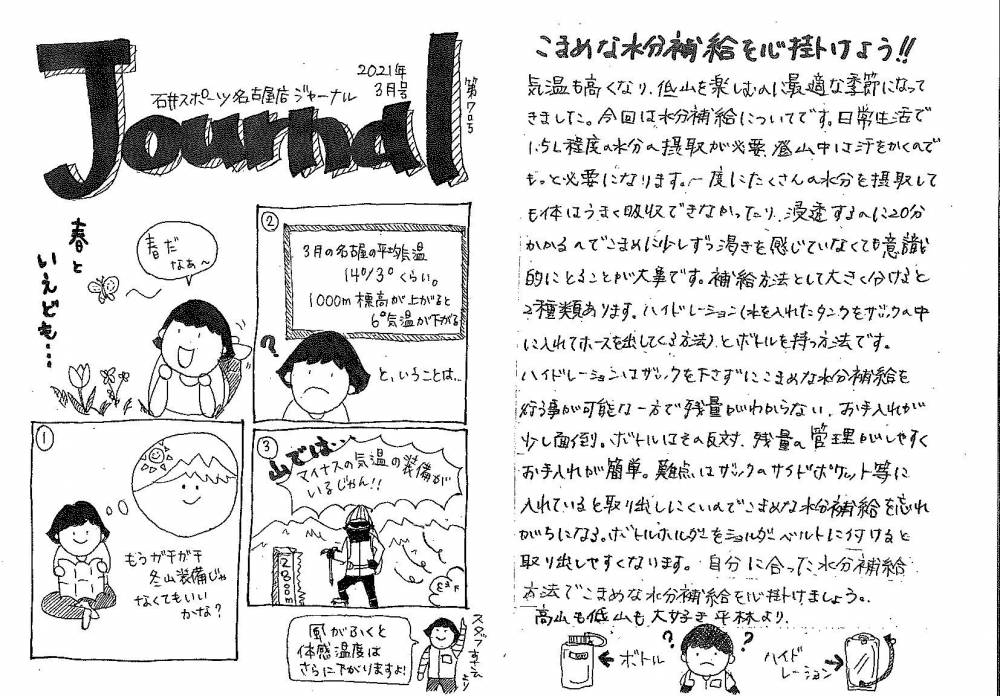 Journal
2021年
3月号
石井スポーツ名古屋店ジャーナル
第70号
春と
いえども…
春だ
なぁ〜
①
もうガチガチ
冬山装備じゃ
なくてもいい
かな?
②
3月の名古屋の平均気温
14°/3°くらい。
1000m標高が上がると
6°気温が下がる
?
と、いうことは…
③
山では…
マイナスの気温の装備が
いるじゃん!!
2800m
風がふくと
体感温度は
さらに下がりますよ!
スタッフ
より
こまめな水分補給を心掛けよう!!
気温も高くなり、低山を楽しむのに最適な季節になって
きました。今回は水分補給についてです。日常生活で
1.5L程度の水分の摂取が必要、登山中は汗をかくので
もっと必要になります。一度にたくさんの水分を摂取して
も体はうまく吸収できなかったり、浸透するのに20分
かかるのでこまめに少しずつ渇きを感じていなくても意識
的にとることが大事です。補給方法として大きく分けると
2種類あります。ハイドレーション(水を入れたタンクをザックの中
に入れてホースを出してくる方法)とボトルを持つ方法です。
ハイドレーションはザックを下さずにこまめな水分補給を
行う事が可能な一方で残量がわからない、お手入れが
少し面倒。ボトルはその反対、残量の管理がしやすく
お手入れが簡単。難点はザックのサイドポケット等に
入れていると取り出しにくいのでこまめな水分補給を忘れ
がちになる。ボトルホルダーをショルダーベルトに付けると
取り出しやすくなります。自分に合った水分補給
方法でこまめな水分補給を心掛けましょう。
高山も低山も大好き平林より
ボトル
?
?
ハイド
レーション